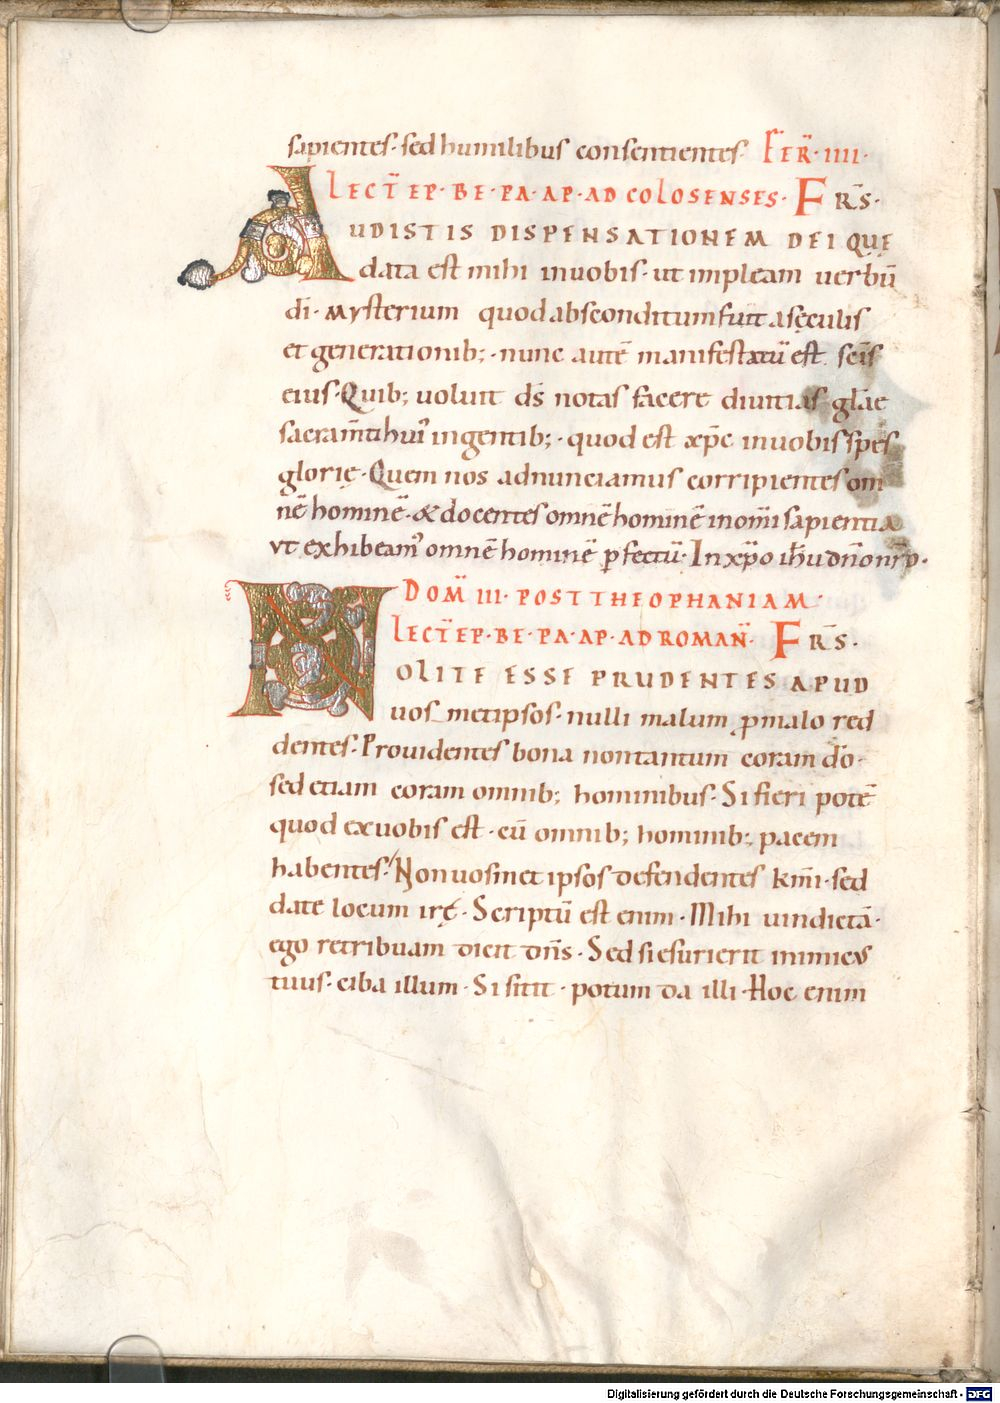 sapientes· sed humilibus consentientes· FER̅· IIII·
LECT̅ EP· BE· PA· AP· AD COLOSENSES· FR̅S·
AUDISTIS DISPENSATIONEM DEI QUĘ
data est mihi inuobis· ut impleam uerbū
dī· Mysterium quod absconditum fuit asęculis
et generationib;· nunc autē manifestatū est sc̄is
eius· Quib; uoluit ds̄ notas facere diuitias gl̄ae
sacram̄ti hui᾽ in gentib;· quod est xp̄c inuobis spes
glorię· Quem nos adnunciamus corripientes om
nē hominē· & docentes omnē hominē inom̄i sapientia
ut exhibeam᾽ omnē hominē ꝑfectū· In xp̄o ih̄u dn̄o nr̄o·
DOM̅ III· POST THEOPHANIAM·
LECT̅ EP· BE· PA· AP· AD ROMAN̅· FR̅S·
NOLITE ESSE PRUDENTES APUD
uos metipsos· nulli malum ꝑ malo red
dentes· Prouidentes bona non tantum coram dō·
sed etiam coram omnib; hominibus· Si fieri potē
quod exuobis est· cū omnib; hominib; pacem
habentes· Non uosmet ipsos defendentes km̄i· sed
date locum irę· Scriptū est enim· Mihi uindictā·
ego retribuam dicit dn̄s· Sed si esurierit inimicus
tuus· ciba illum· Si sitit· potum da illi· Hoc enim
Digitalisierung gefördert durch die Deutsche Forschungsgemeinschaft - DFG